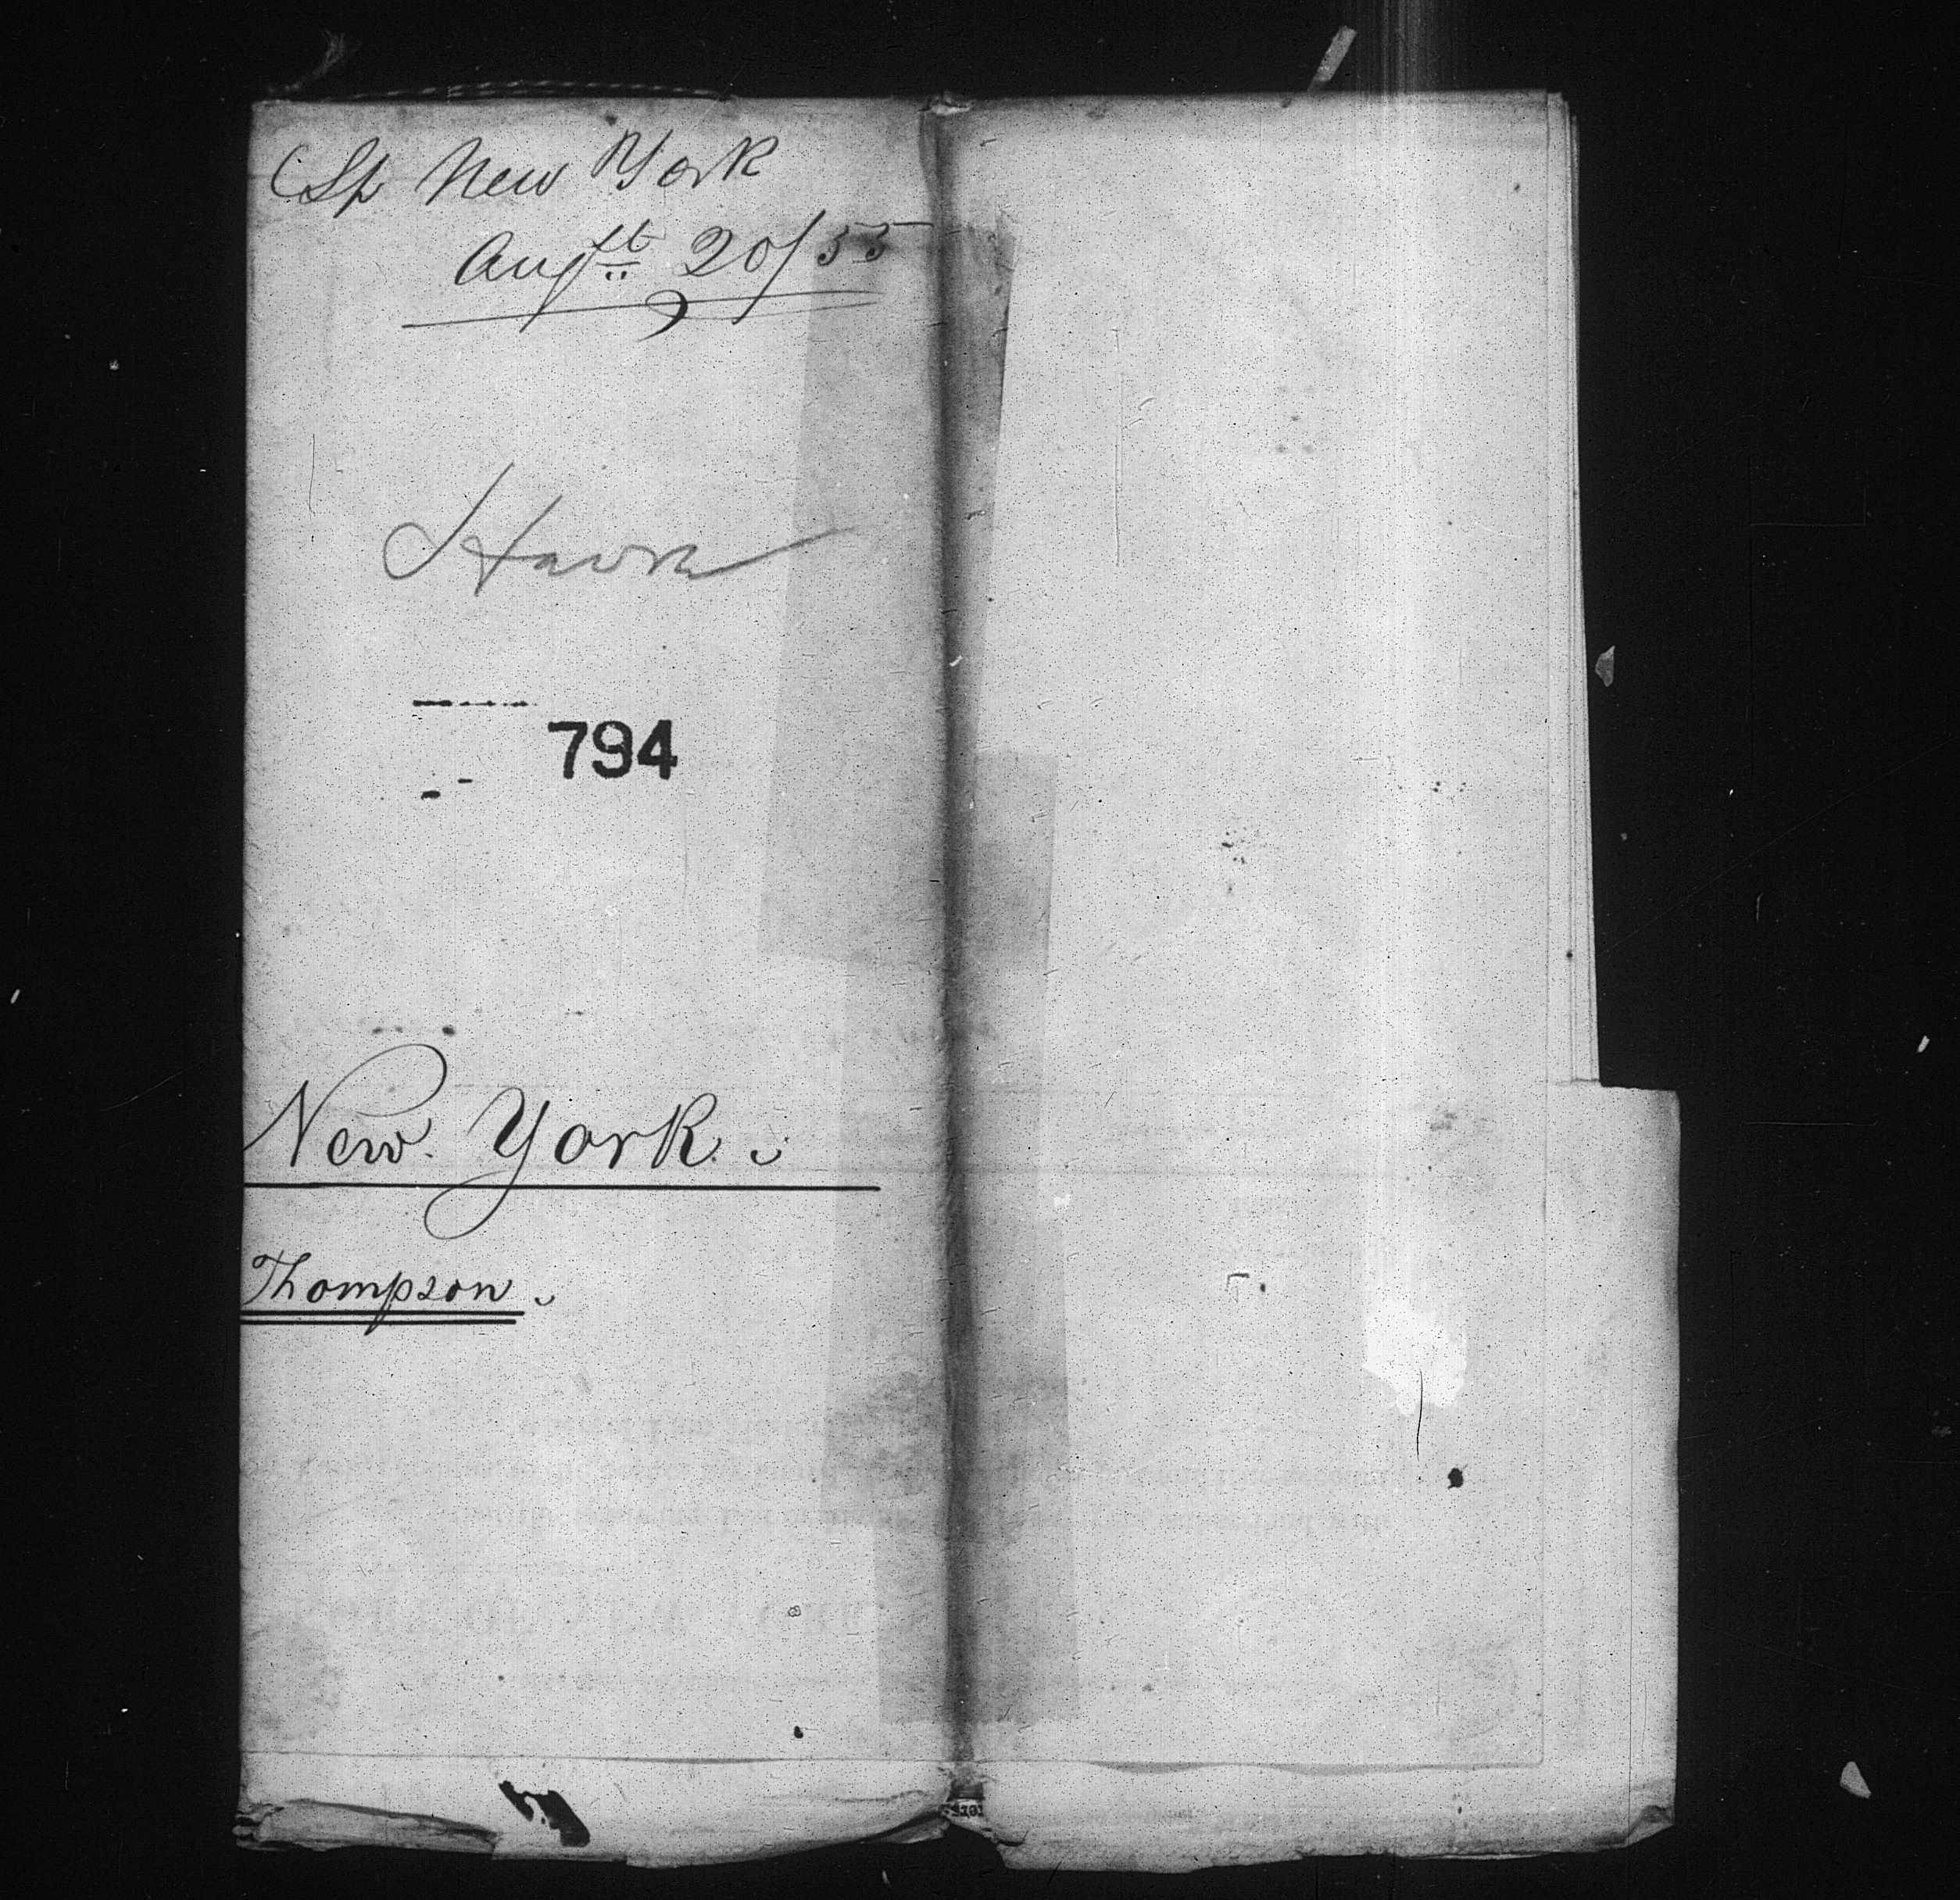 Sp New York
Augst 20/55
Havre
794
New York.
Thompson.